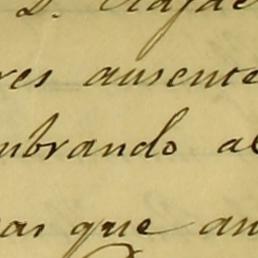 D. Rafae
res ausente
mbrando al
as que an